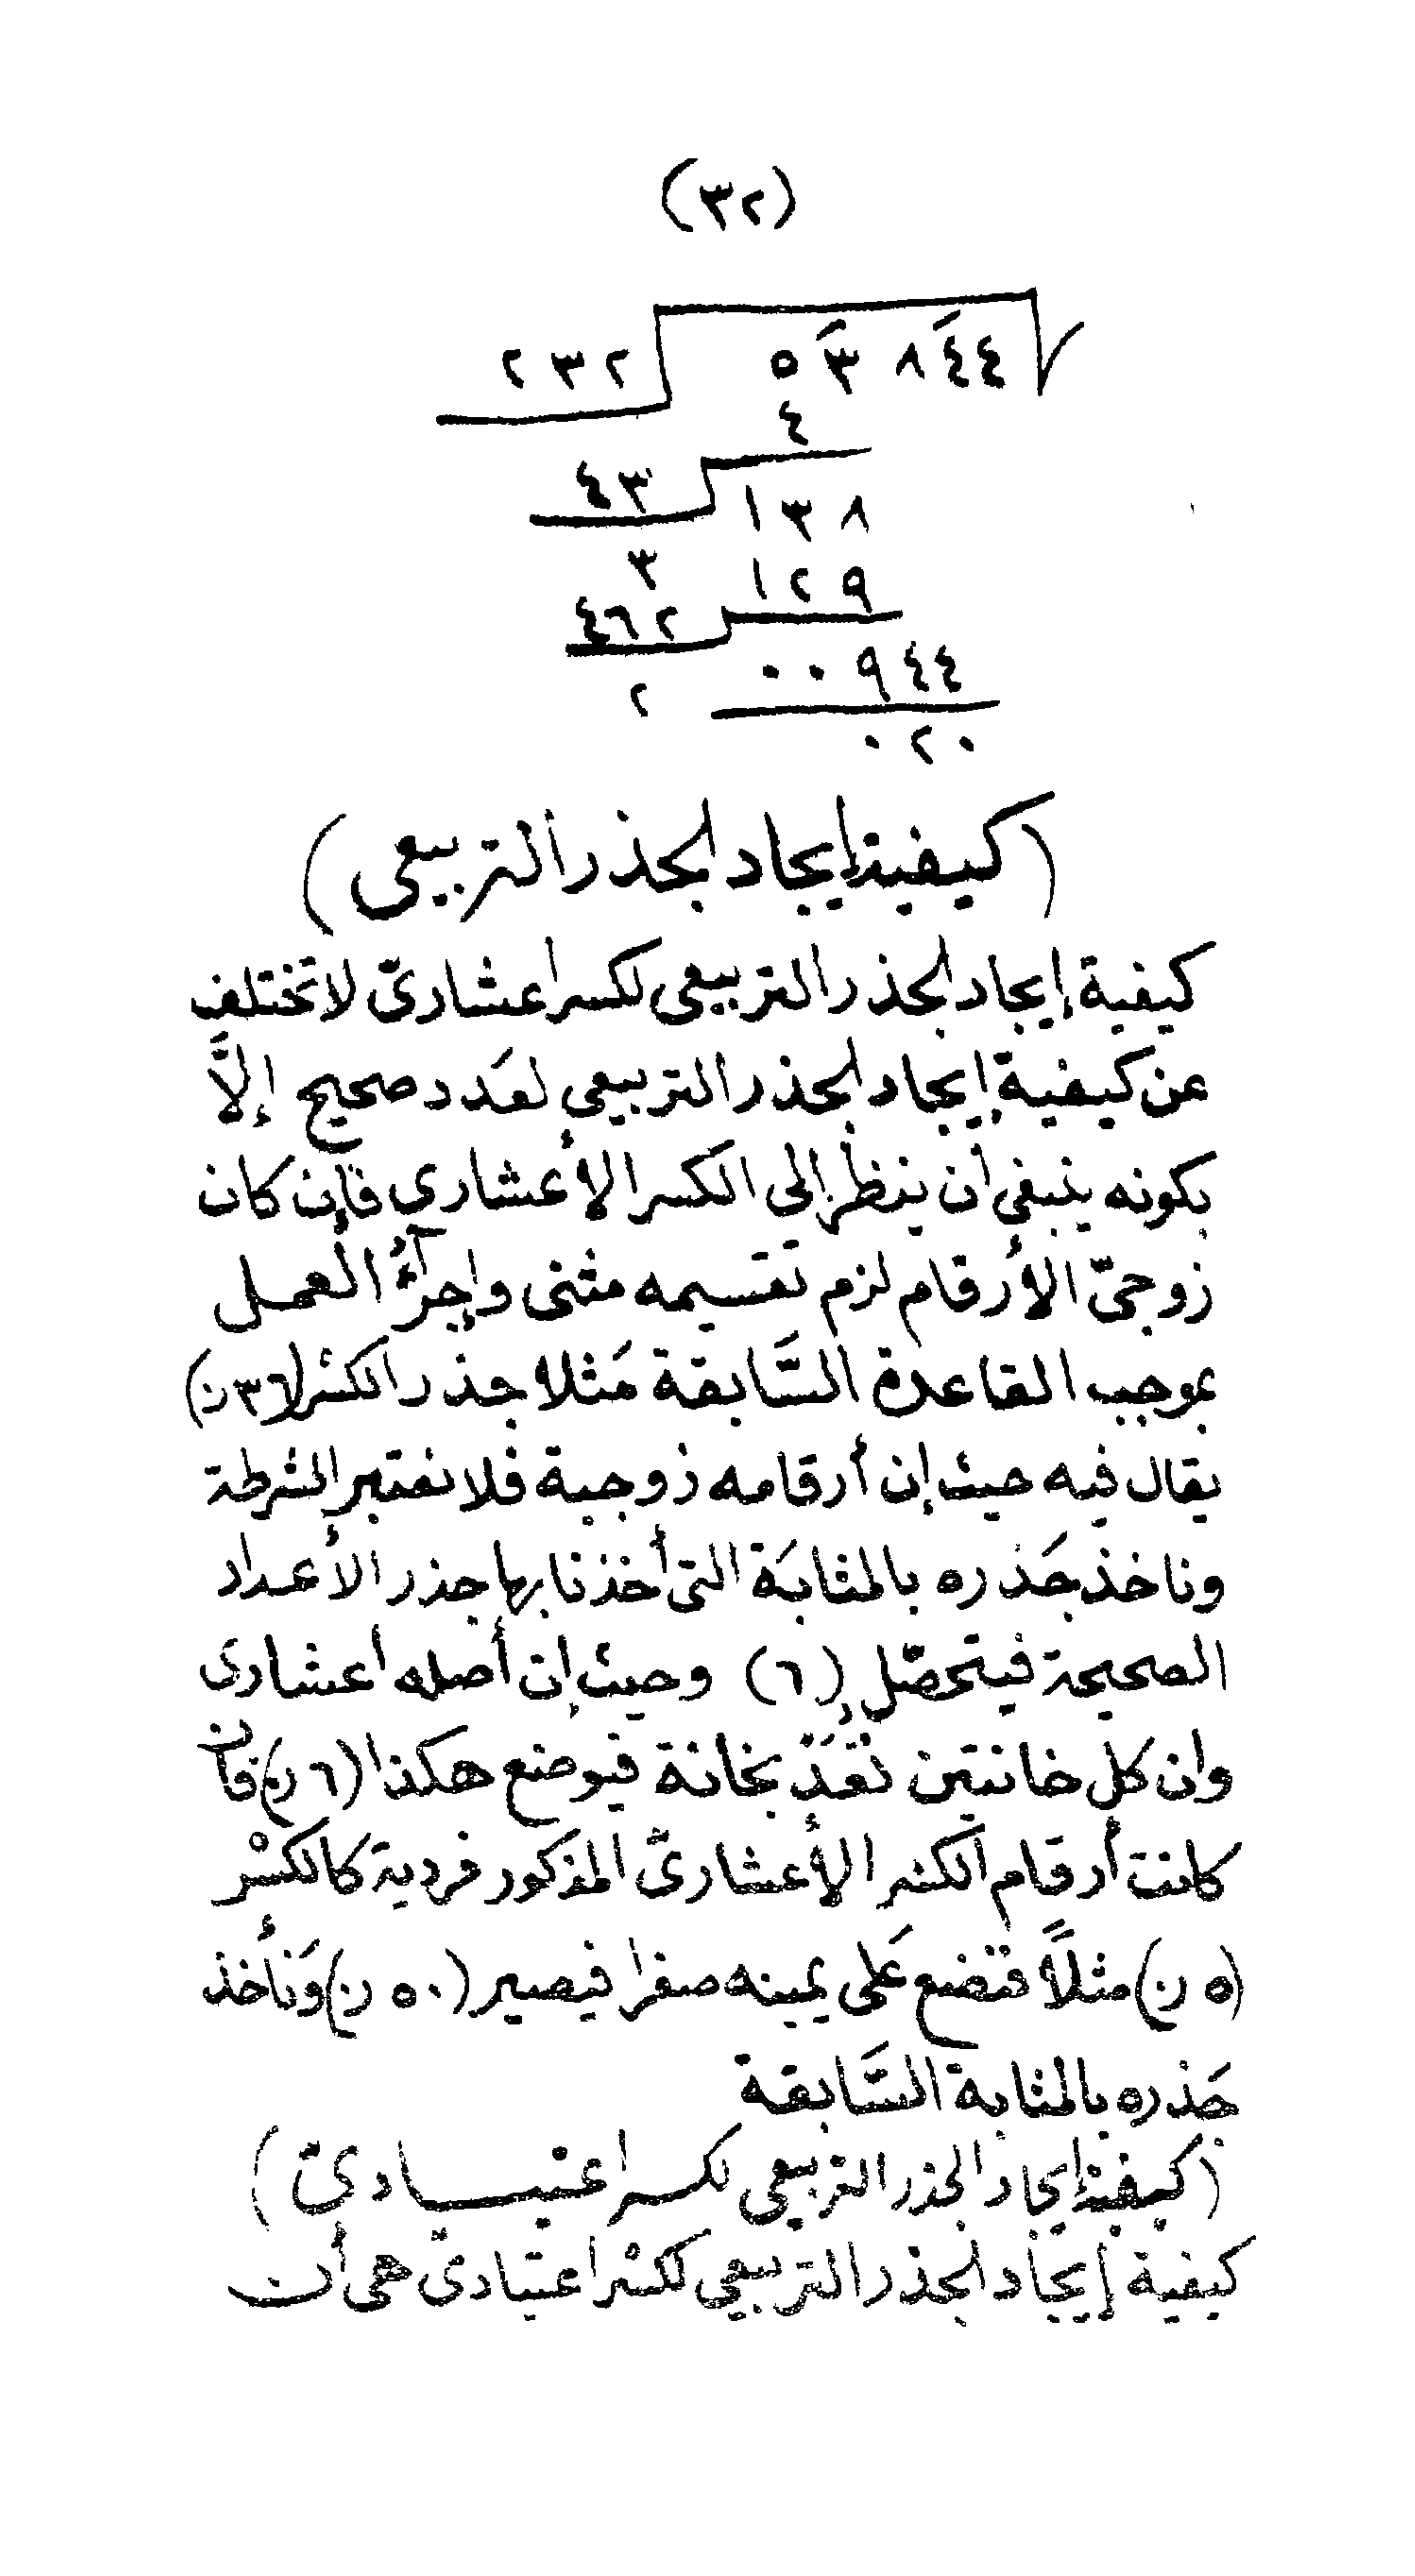 (٣٢)
٥٣٨٤٤ ٢٣٢
٤
١٣٨ ٤٣
١٢٩ ٣
٠٠٩٤٤ ٤٦٢
٠٢٠ ٢
(كيفية إيجاد الجذر التربيعى)
كيفية إيجاد الجذر التربيعى لكسر اعشارىّ لا تختلف
عن كيفية إيجاد الجذر التربيعي لعَدد صحيح إلاَّ
بكونه ينبغى أن ينظر إلى الكسر الأعشاري فإن كان
زوجىّ الأرقام لزم تقسيمه مثنى وإجرآءُ العمل
بموجب القاعدة السَّابقة مَثلا جذر الكسْر (٣٦ ن)
يقال فيه حيث إن أرقامه زوجية فلا نعتبر الشرطة
وناخذ جَذره بالمثابَة التى أخذنا بها جذر الأعداد
الصحيحة فيتحصّل (٦) وحيث إن أصله اعشارى
وان كل خانتين تُعَدّ بخانة فيوضع هكذا (٦ ن) فان
كانت أرقام الكسر الأعشارىّ المذكور فردية كالكسْر
(٥ ن) مثلاً فتضع عَلى يمينه صفرا فيصير (٥٠ ن) وَنأخذ
جَذره بالمثابة السَّابقة
(كيفية إيجاد الجذر التربيعي لكسر اعتيادىّ)
كيفية إيجاد الجذر التربيعي لكسْر اعتيادىّ هى أن